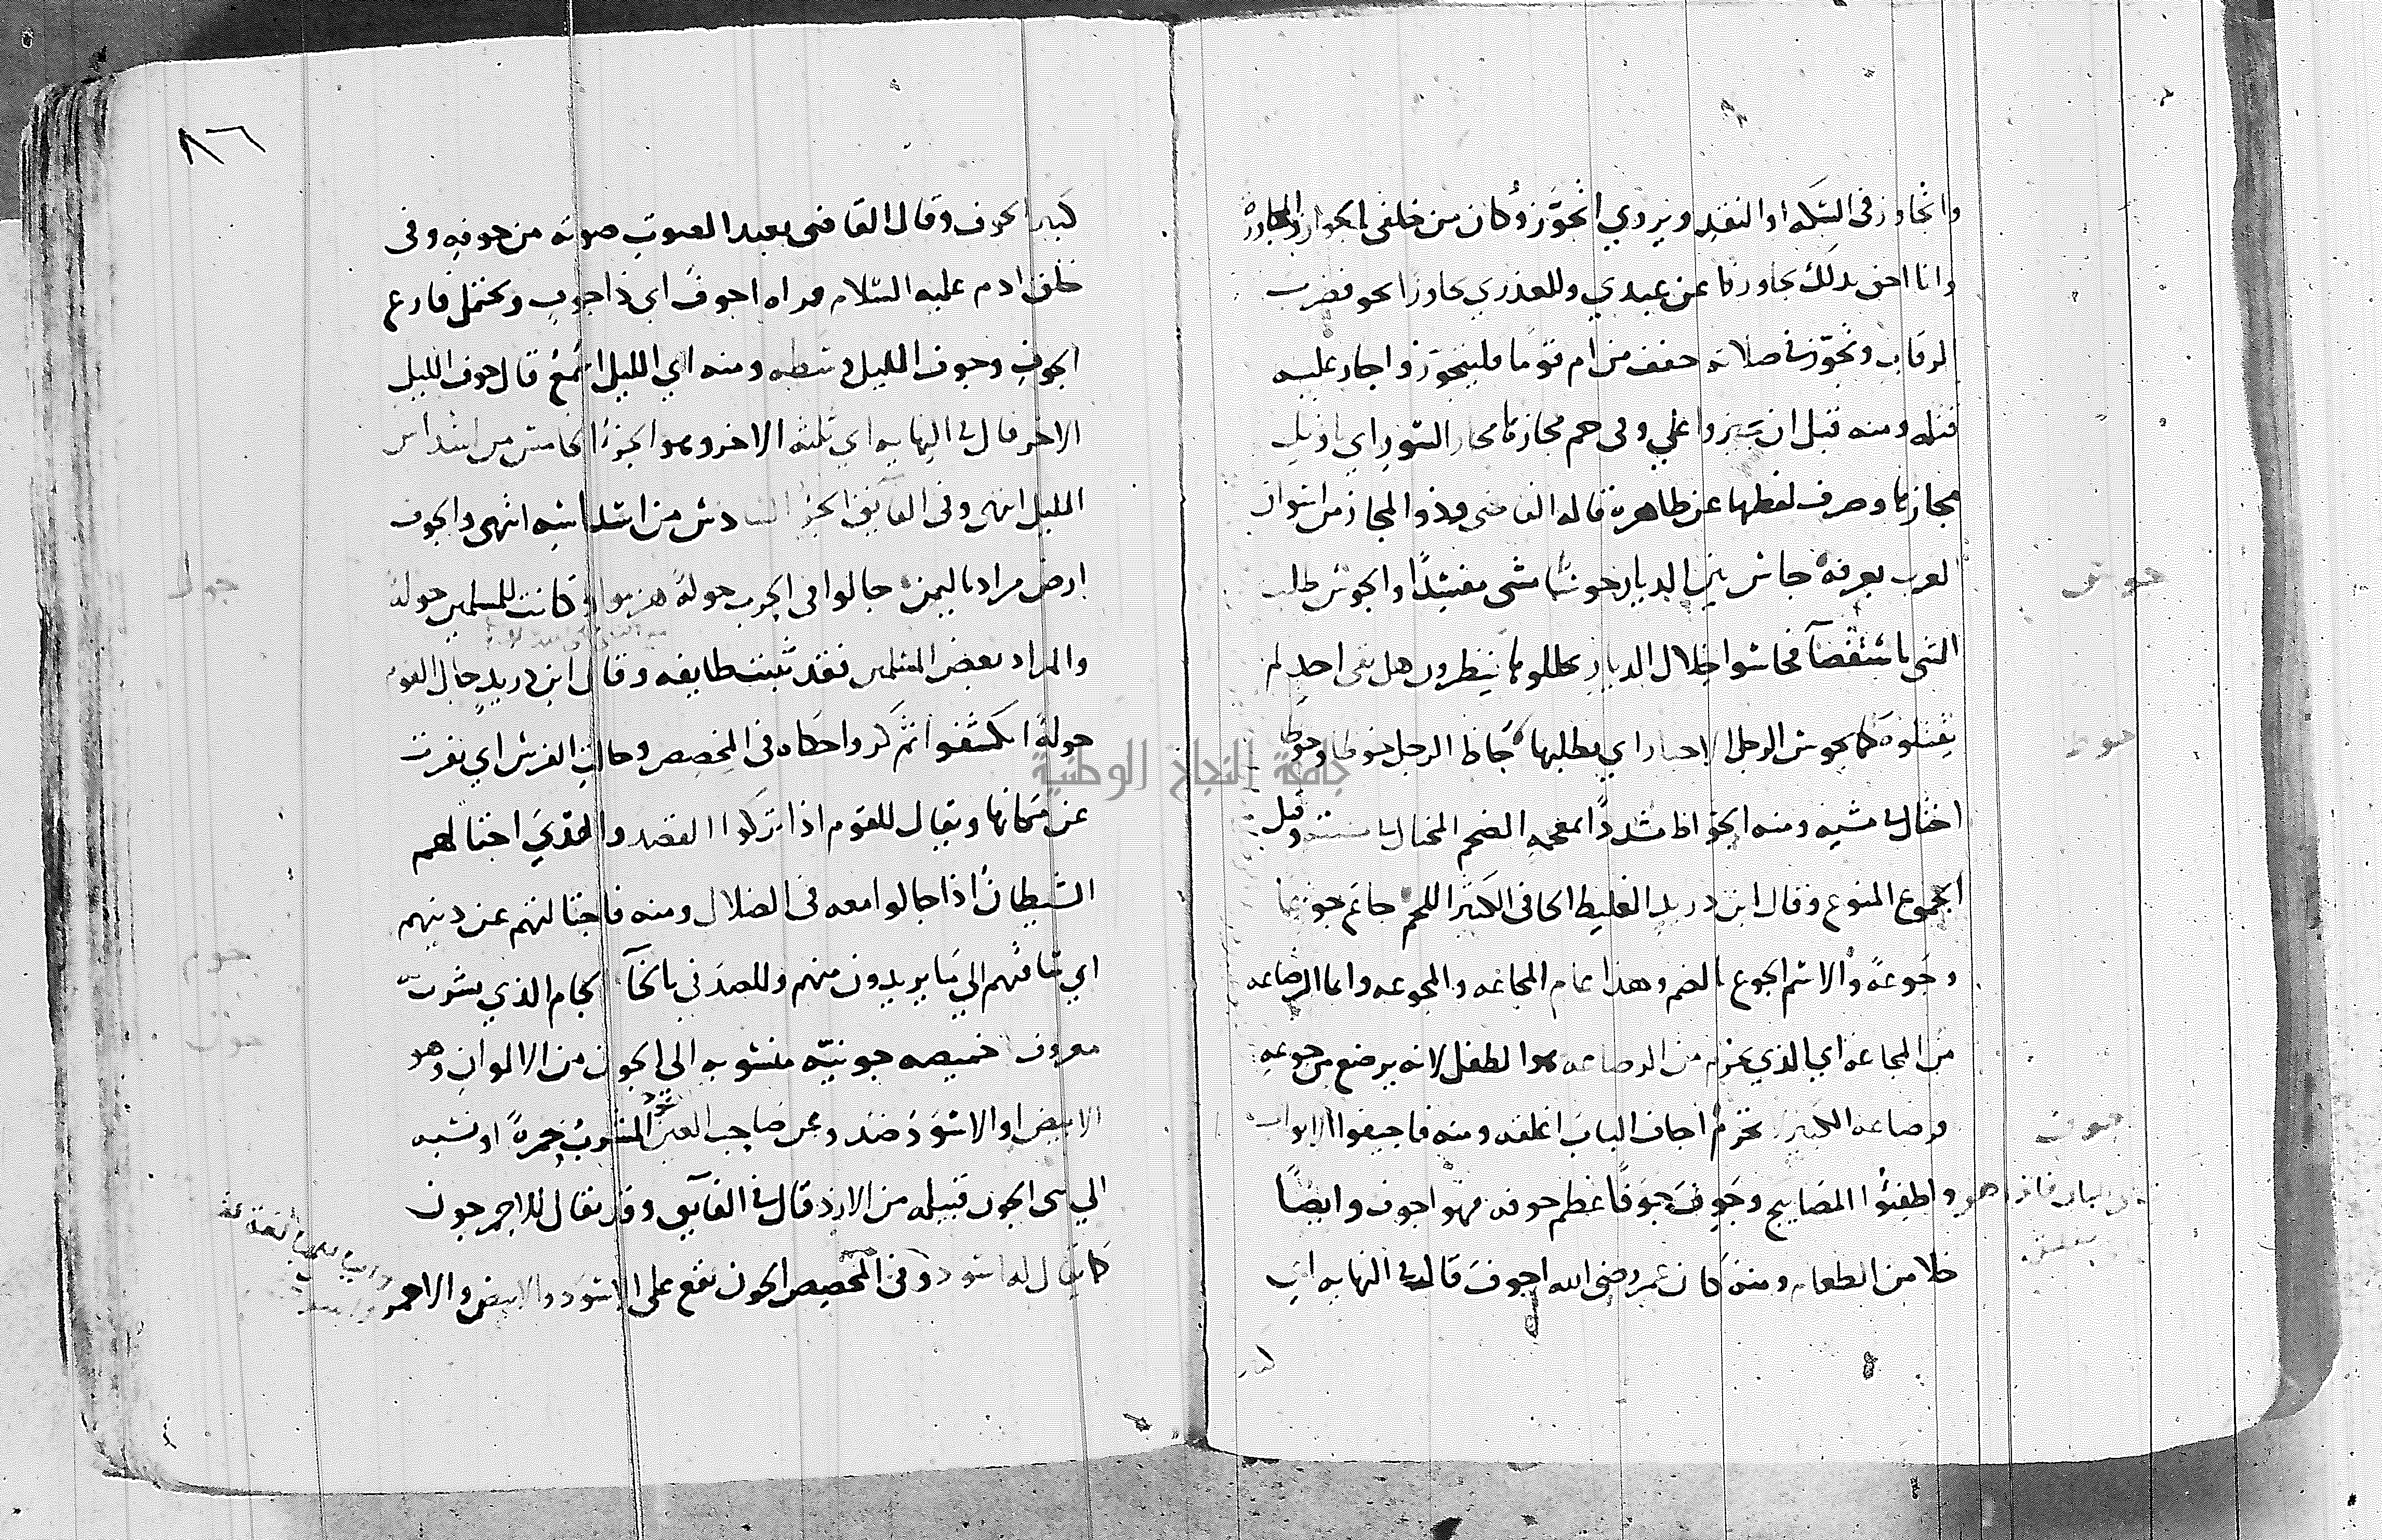 واتجاوز في السكة او النقد ويروي اتجوز وكان من خلقي الجواز والمجاوزة
وانا احق بذلك تجاوزنا عن عبدي وللعذري تجاوزا لحو فضرب
الرقاب وتجوز في صلاته خفف من ام قوما فليتجوز واجاز عليه
قتله ومنه قبل ان تجيزوا علي وفي حم مجازها مجاز السور اي تاويل
مجازها وصرف لفظها عن ظاهره قاله القاضي وذو المجاز من اسواق
العرب بعرفة جاش بين الديار جوسا مشى مفسدا والجوس طلب
الشي باستقصآ فجاسوا خلال الديار تخللوها ينظرون هل بقى احد لم
يقتلوه كما يجوس الرجل الاخبار اي يطلبها جاظ الرجل جوظا وجوظا
اختال في مشيه ومنه الجواظ مشددا بمعجمه الضخم المختال في مشيته وقيل
الجموع المنوع وقال ابن دريد الغليظ الجافي الكثير اللحم جائع جوعا
وجوعة والاسم الجوع بالضم وهذا عام المجاعه والمجوعه وانما الرضاعه
من المجاعه اي الذي يحرم من الرضاعه هو الطفل لانه يرضع من جوعه
ورضاعه الكبير لا تحرم اجاف الباب اغلقه ومنه فاجيفوا الابواب
واطفئوا المصابيح وجوف جوفا عظم جوفه فهو اجوف وايضا
خلا من الطعام ومنه كان عمر رضي الله اجوف قال في النهايه اي
كبير
جوس
جوظ
جوف
٨٦
كبير الجوف وقال القاضى بعيد الصوت صوته من جوفه وفى
خلق ادم عليه السلام فراه اجوف اي ذا جوف ويحتمل فارغ
الجوف وجوف الليل وسطه ومنه اي الليل اسمع قال جوف الليل
الاخر قال في النهايه اي ثلثه الاخر وهو الجزؤ الخامس من اسداس
الليل انتهى وفى الفآيق الجزؤ السادس من اسداسه انتهى والجوف
ارض مراد باليمن جالوا فى الحرب جولة هزموا وكانت للمسلمين جولة
والمراد بعض المسلمين فقد ثبتت طايفه وقال ابن دريد جال القوم
جولة انكشفوا ثم كروا حكاه فى المخصص وجالت الفرس اي نفرت
عن مكانها ويقال للقوم اذا تركوا القصد والهدي اجتالهم
الشيطان اذا جالوا معه فى الضلال ومنه فاجتالتهم عن دينهم
اي ساقتهم الي ما يريدون منهم وللصدفي بالخآ الجام الذي يشرب
معروف خميصه جونيه منسوبه الى الجون من الالوان وهو
الابيض او الاسود ضد وعن صاحب العين الاسود المشرب حمرة او نسبه
الي بنى الجون قبيله من الازد قال في الفآيق وقد يقال للاحمر جون
كما يقال للاسود وفى المخصص الجون تقع على الاسود والابيض والاحمر
جول
جوم
جون
جامعة النجاح الوطنية